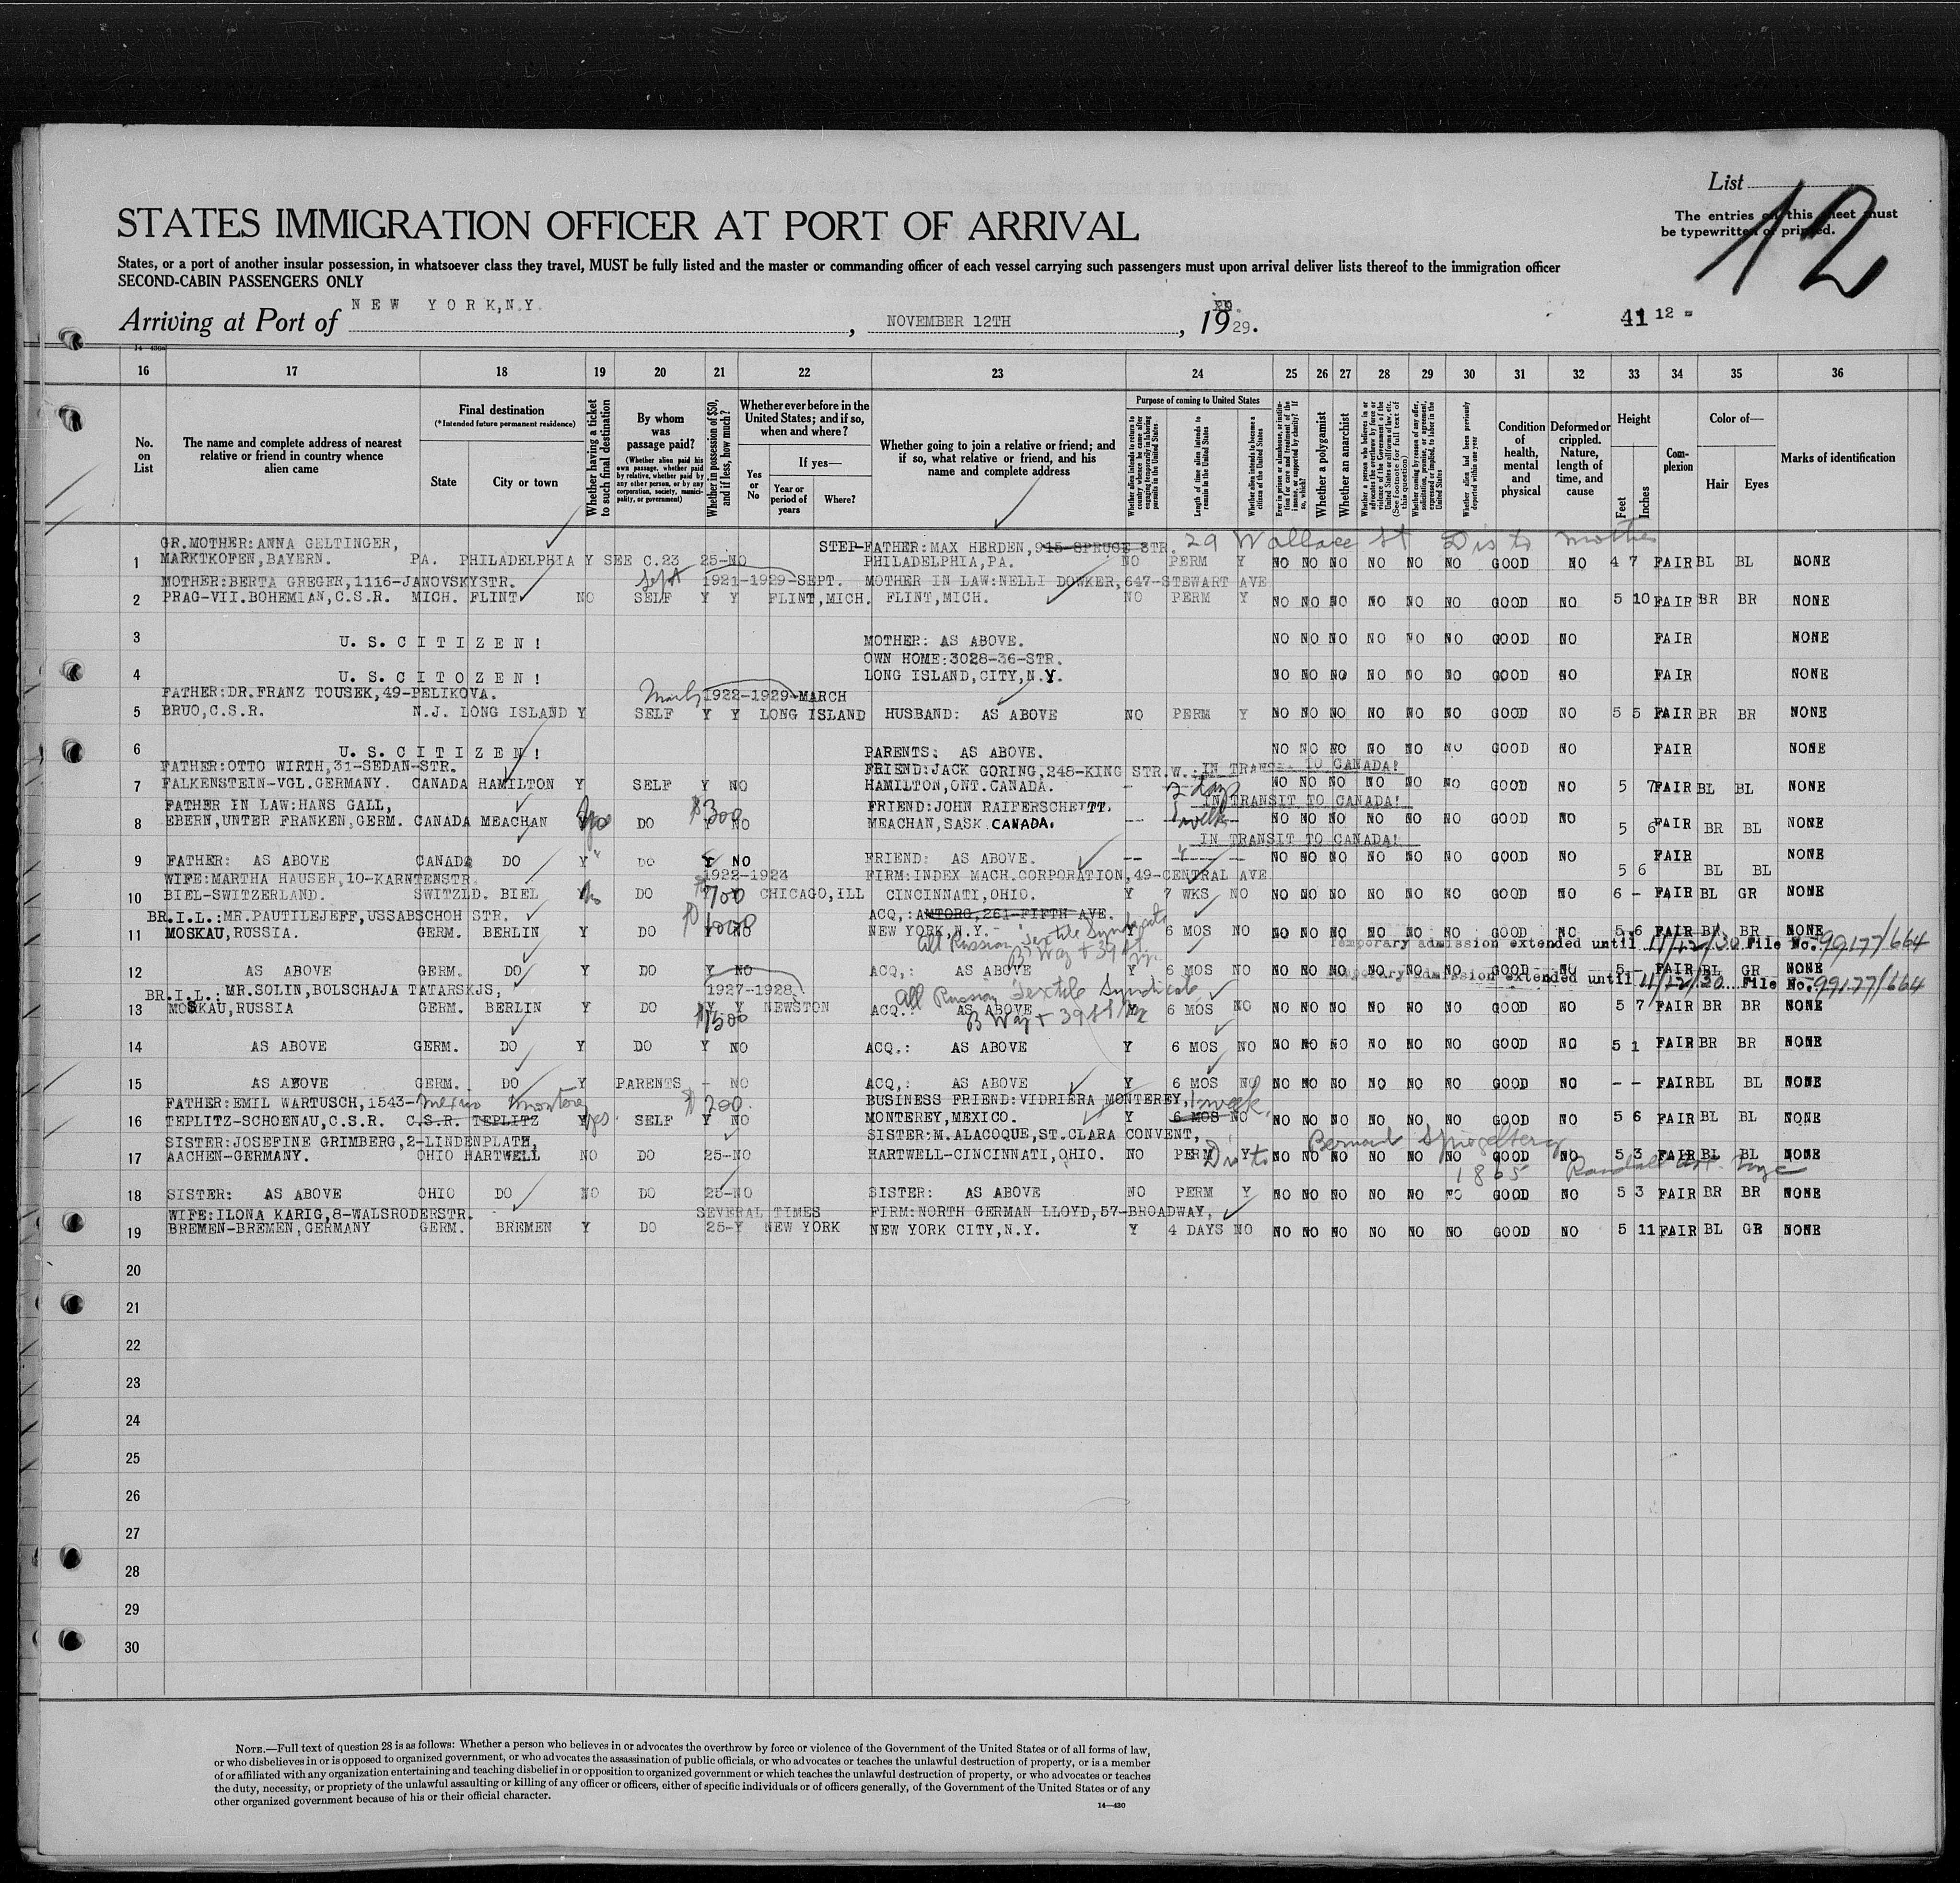 List
12
The entries on this sheet must
be typewritten or printed.
STATES IMMIGRATION OFFICER AT PORT OF ARRIVAL
States, or a port of another insular possession, in whatsoever class they travel, MUST be fully listed and the master or commanding officer of each vessel carrying such passengers must upon arrival deliver lists thereof to the immigration officer
SECOND-CABIN PASSENGERS ONLY
Arriving at Port of NEW YORK,N.Y., NOVEMBER 12TH, 1929.
41 12
16 17 18 19 20 21 22 23 24 25 26 27 28 29 30 31 32 33 34 35 36
No. on List
The name and complete address of nearest relative or friend in country whence alien came
Final destination
(*Intended future permanent residence)
State
City or town
Whether having a ticket to such final destination
By whom was passage paid?
(Whether alien paid his own passage, whether paid by relative, whether paid by any other person, or by any corporation, society, municipality, or government)
Whether in possession of $50, and if less, how much?
Whether ever before in the United States; and if so, when and where?
Yes or No
If yes—
Year or period of years
Where?
Whether going to join a relative or friend; and if so, what relative or friend, and his name and complete address
Purpose of coming to United States
Length of time alien intends to remain in the United States
Whether alien intends to become a citizen of the United States
Whether a polygamist
Whether an anarchist
Condition of health, mental and physical
Deformed or crippled. Nature, length of time, and cause
Height
Feet
Inches
Complexion
Color of—
Hair
Eyes
Marks of identification
GR.MOTHER:ANNA GELTINGER, STEP-FATHER:MAX HERDEN,915-SPRUCE STR. 29 Wallace St Dis to mother
1 MARKTKOFEN,BAYERN. PA. PHILADELPHIA Y SEE C.23 25-NO PHILADELPHIA,PA. NO PERM Y NO NO NO NO NO NO GOOD NO 4 7 FAIR BL BL NONE
MOTHER:BERTA GREGER,1116-JANOVSKYSTR. Sept 1921-1929-SEPT. MOTHER IN LAW:NELLI DOWKER,647-STEWART AVE
2 PRAG-VII.BOHEMIAN,C.S.R. MICH. FLINT NO SELF Y Y FLINT,MICH. FLINT,MICH. NO PERM Y NO NO NO NO NO NO GOOD NO 5 10 FAIR BR BR NONE
3 U. S. C I T I Z E N ! MOTHER: AS ABOVE. NO NO NO NO NO NO GOOD NO FAIR NONE
OWN HOME:3028-36-STR.
4 U. S. C I T O Z E N ! LONG ISLAND,CITY,N.Y. NO NO NO NO NO NO GOOD NO FAIR NONE
FATHER:DR.FRANZ TOUSEK,49-PELIKOVA. 1922-1929-MARCH
5 BRUO,C.S.R. N.J. LONG ISLAND Y SELF Y Y LONG ISLAND HUSBAND: AS ABOVE NO PERM Y NO NO NO NO NO NO GOOD NO 5 5 FAIR BR BR NONE
6 U. S. C I T I Z E N ! PARENTS: AS ABOVE. NO NO NO NO NO NO GOOD NO FAIR NONE
FATHER:OTTO WIRTH,31-SEDAN-STR. FRIEND:JACK GORING,248-KING STR.W. IN TRANSIT TO CANADA!
7 FALKENSTEIN-VGL.GERMANY. CANADA HAMILTON Y SELF Y NO HAMILTON,ONT.CANADA. - 2 days NO NO NO NO NO NO GOOD NO 5 7 FAIR BL BL NONE
FATHER IN LAW:HANS GALL, $300 FRIEND:JOHN RAIFERSCHETTT. IN TRANSIT TO CANADA!
8 EBERN,UNTER FRANKEN,GERM. CANADA MEACHAN yes DO Y NO MEACHAN,SASK.CANADA. -- 1 week NO NO NO NO NO NO GOOD NO 5 6 FAIR BR BL NONE
IN TRANSIT TO CANADA!
9 FATHER: AS ABOVE CANADA DO Y DO Y NO FRIEND: AS ABOVE. -- NO NO NO NO NO NO GOOD NO 5 6 FAIR BL BL NONE
WIFE:MARTHA HAUSER,10-KARNTENSTR. 1922-1924 FIRM:INDEX MACH.CORPORATION,49-CENTRAL AVE
10 BIEL-SWITZERLAND. SWITZLD. BIEL No DO $700 CHICAGO,ILL CINCINNATI,OHIO. Y 7 WKS NO NO NO NO NO NO NO GOOD NO 6 - FAIR BL GR NONE
BR.I.L.:MR.PAUTILEJEFF,USSABSCHOH STR. $1000 ACQ,:AMTORG,261-FIFTH AVE.
11 MOSKAU,RUSSIA. GERM. BERLIN Y DO Y NO NEW YORK,N.Y.- Y 6 MOS NO NO NO NO NO NO NO GOOD NO 5 6 FAIR BR BR NONE
All Russian Textile Syndicate B'Way + 39 St. Ny. Temporary admission extended until 11/12/30 File No. 99177/664
12 AS ABOVE GERM. DO Y DO Y NO ACQ,: AS ABOVE Y 6 MOS NO NO NO NO NO NO NO GOOD NO 5 - FAIR BL GR NONE
Temporary admission extended until 11/12/30 File No. 99177/664
BR.I.L.:MR.SOLIN,BOLSCHAJA TATARSKJS, 1927-1928 All Russian Textile Syndicate
13 MOSKAU,RUSSIA GERM. BERLIN Y DO Y Y NEWSTON ACQ.: AS ABOVE Y 6 MOS NO NO NO NO NO NO NO GOOD NO 5 7 FAIR BR BR NONE
$1500 B Way + 39 St Ny
14 AS ABOVE GERM. DO Y DO Y NO ACQ.: AS ABOVE Y 6 MOS NO NO NO NO NO NO NO GOOD NO 5 1 FAIR BR BR NONE
15 AS ABOVE GERM. DO Y PARENTS - NO ACQ,: AS ABOVE Y 6 MOS NO NO NO NO NO NO NO GOOD NO - - FAIR BL BL NONE
FATHER:EMIL WARTUSCH,1543- Mexico Monterey $200. BUSINESS FRIEND:VIDRIERA MONTEREY, 1 week,
16 TEPLITZ-SCHOENAU,C.S.R. C.S.R. TEPLITZ yes. SELF Y NO MONTEREY,MEXICO. Y 6 MOS NO NO NO NO NO NO NO GOOD NO 5 6 FAIR BL BL NONE
SISTER:JOSEFINE GRIMBERG,2-LINDENPLATH, SISTER:M.ALACOQUE,ST.CLARA CONVENT, Dis to Bernard Spiegelberg
17 AACHEN-GERMANY. OHIO HARTWELL NO DO 25-NO HARTWELL-CINCINNATI,OHIO. NO PERM Y NO NO NO NO NO NO GOOD NO 5 3 FAIR BL BL NONE
1865 Randall Nyc
18 SISTER: AS ABOVE OHIO DO NO DO 25-NO SISTER: AS ABOVE NO PERM Y NO NO NO NO NO NO GOOD NO 5 3 FAIR BR BR NONE
WIFE:ILONA KARIG,8-WALSRODERSTR. SEVERAL TIMES FIRM:NORTH GERMAN LLOYD,57-BROADWAY,
19 BREMEN-BREMEN,GERMANY GERM. BREMEN Y DO 25-Y NEW YORK NEW YORK CITY,N.Y. Y 4 DAYS NO NO NO NO NO NO NO GOOD NO 5 11 FAIR BL GR NONE
20
21
22
23
24
25
26
27
28
29
30
NOTE.—Full text of question 28 is as follows: Whether a person who believes in or advocates the overthrow by force or violence of the Government of the United States or of all forms of law,
or who disbelieves in or is opposed to organized government, or who advocates the assassination of public officials, or who advocates or teaches the unlawful destruction of property, or is a member
of or affiliated with any organization entertaining and teaching disbelief in or opposition to organized government or which teaches the unlawful destruction of property, or who advocates or teaches
the duty, necessity, or propriety of the unlawful assaulting or killing of any officer or officers, either of specific individuals or of officers generally, of the Government of the United States or of any
other organized government because of his or their official character.
14—430